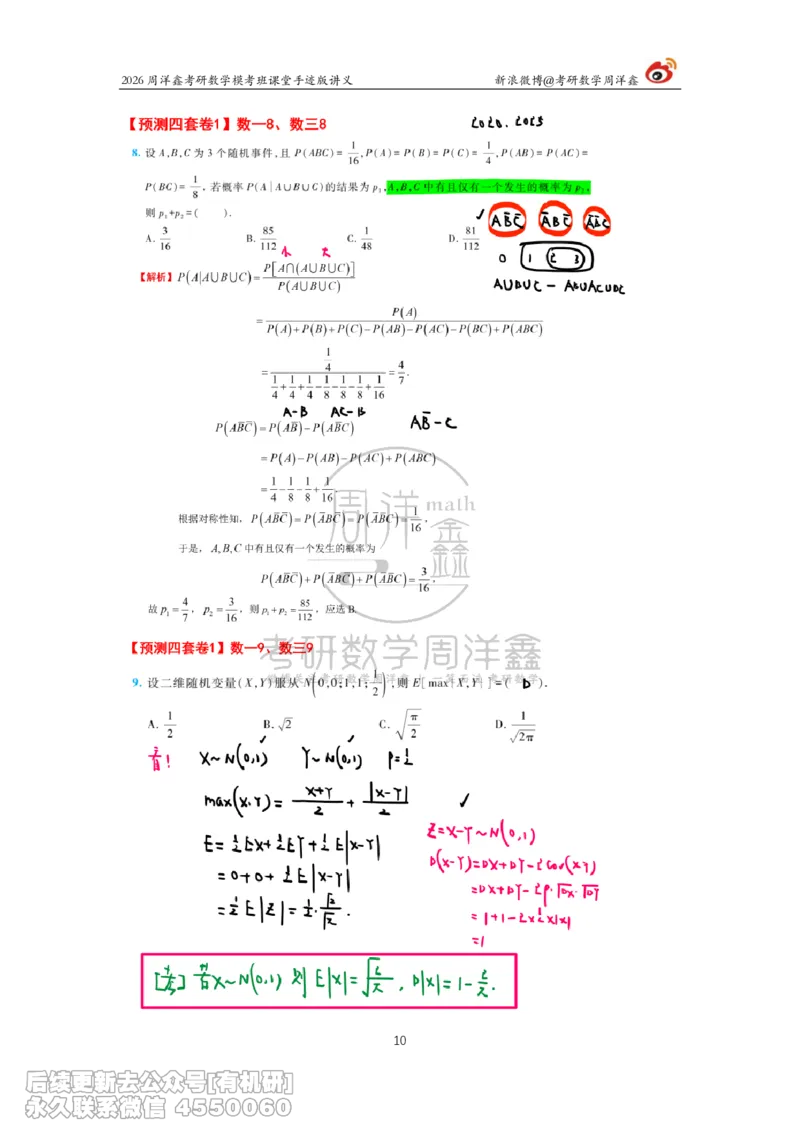 2026 周洋鑫考研数学模考班课堂手迹版讲义 新浪微博@考研数学周洋鑫
【预测四套卷1】数一8、数三8 2020. 2025
8. 设 A,B,C 为 3 个随机事件,且 P(ABC)= 1/16 ,P(A)=P(B)=P(C)= 1/4 ,P(AB)=P(AC)=
P(BC)= 1/8 , 若概率 P(A|A∪B∪C)的结果为 p₁,A,B,C 中有且仅有一个发生的概率为 p₂,
则 p₁+p₂=( ).
AB̄C̄ ĀBC̄ ĀB̄C
A. 3/16 B. 85/112 C. 1/48 D. 81/112
小 大
0 1 2 3
A∪B∪C - AB∪AC∪BC
【解析】P(A|A∪B∪C)= P[A∩(A∪B∪C)] / P(A∪B∪C)
= P(A) / P(A)+P(B)+P(C)-P(AB)-P(AC)-P(BC)+P(ABC)
= 1/4 / 1/4+1/4+1/4-1/8-1/8-1/8+1/16 = 4/7 .
A-B AC-B
P(AB̄C̄)=P(AB̄)-P(AB̄C) AB̄-C
=P(A)-P(AB)-P(AC)+P(ABC)
= 1/4-1/8-1/8+1/16 .
根据对称性知, P(AB̄C̄)=P(ĀBC̄)=P(ĀB̄C)= 1/16 ,
于是, A,B,C 中有且仅有一个发生的概率为
P(AB̄C̄)+P(ĀBC̄)+P(ĀB̄C)= 3/16 ,
故 p₁= 4/7 , p₂= 3/16 , 则 p₁+p₂= 85/112 , 应选 B.
周洋鑫 math
考研数学周洋鑫
【预测四套卷1】数一9、数三9
9. 设二维随机变量(X,Y)服从 N(0,0;1,1; 1/2 ),则 E[max{X,Y}]=( D ).
A. 1/2 B. √2 C. √(π/2) D. 1/√(2π)
X~N(0,1) Y~N(0,1) ρ=1/2
max(X,Y)= X+Y/2 + |X-Y|/2
E= 1/2 EX+ 1/2 EY+ 1/2 E|X-Y|
=0+0+ 1/2 E|X-Y|
= 1/2 E|Z|= 1/2 · √2/√π .
Z=X-Y~N(0,1)
D(X-Y)=DX+DY-2Cov(X,Y)
=DX+DY-2ρ·√DX·√DY
=1+1-2×1/2×1×1
=1
若X~N(0,1) 则 E|X|= √(2/π) , D|X|=1- 2/π .
10
后续更新去公众号[有机研]
永久联系微信 4550060